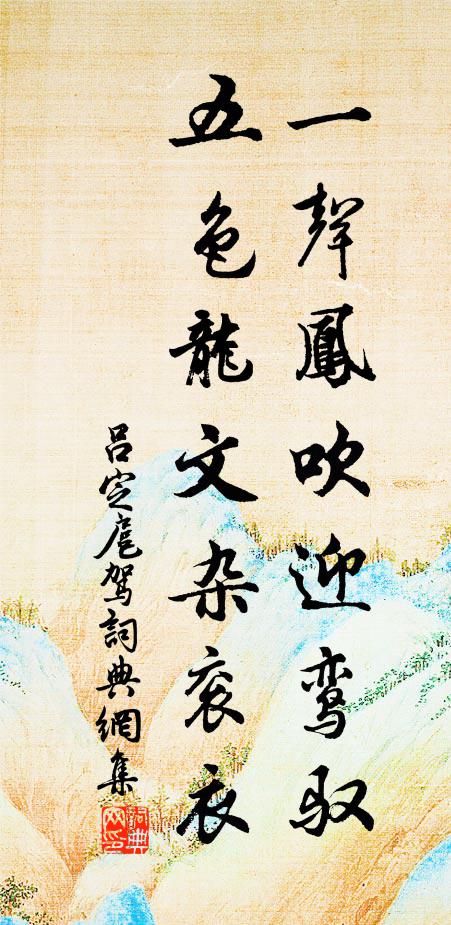 一聲鳳吹迎鸾驭
五色龍文杂衮衣
吕定扈駕詞典網集
詞典网印